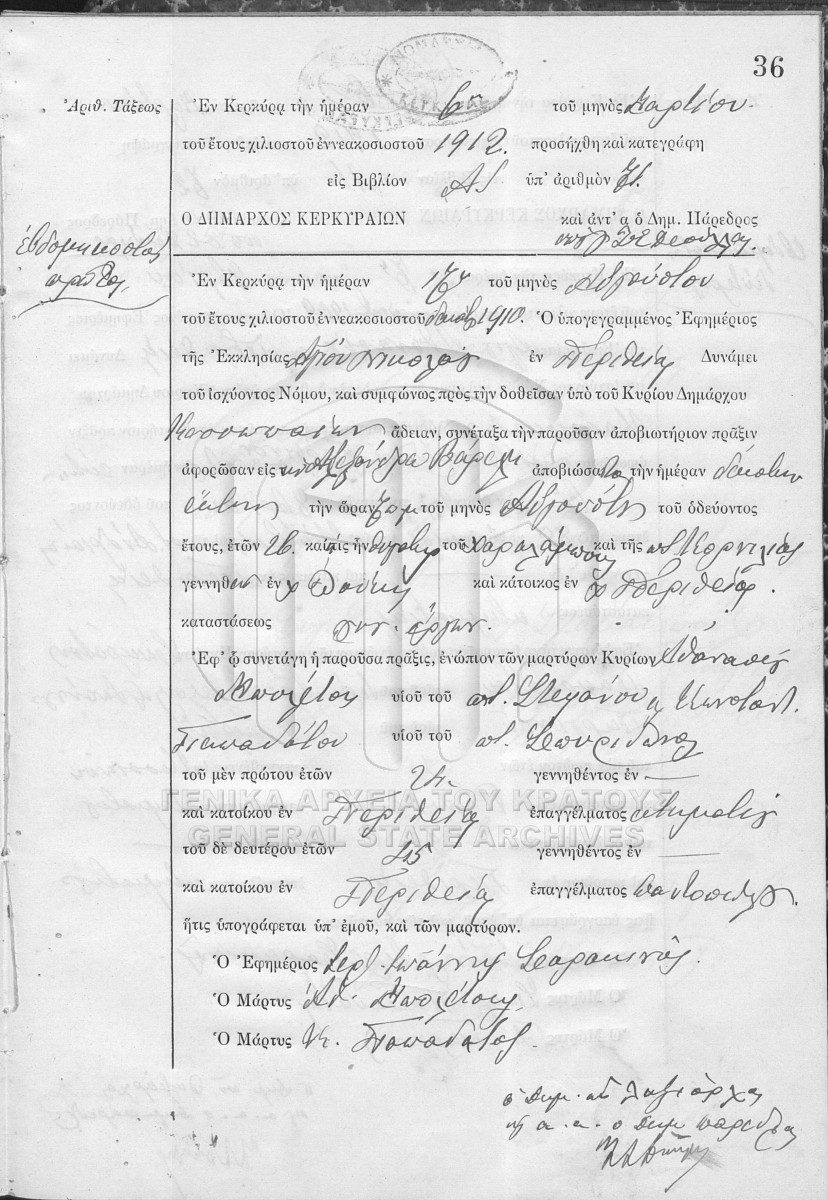 36
Ἀριθ. Τάξεως
Ἐν Κερκύρᾳ τὴν ἡμέραν 6η τοῦ μηνὸς Μαρτίου
τοῦ ἔτους χιλιοστοῦ ἐννεακοσιοστοῦ 1912. προσήχθη καὶ κατεγράφη
εἰς Βιβλίον ὑπ' ἀριθμὸν 71.
Ὁ ΔΗΜΑΡΧΟΣ ΚΕΡΚΥΡΑΙΩΝ καὶ ἀντ' α ὁ Δημ. Πάρεδρος
ἑβδομηκοστὸν
πρῶτον
Ἐν Κερκύρᾳ τὴν ἡμέραν 17ην τοῦ μηνὸς Αὐγούστου
τοῦ ἔτους χιλιοστοῦ ἐννεακοσιοστοῦ δεκάτου 1910. Ὁ ὑπογεγραμμένος Ἐφημέριος
τῆς Ἐκκλησίας Ἁγίου Νικολάου ἐν Περιθείᾳ Δυνάμει
τοῦ ἰσχύοντος Νόμου, καὶ συμφώνως πρὸς τὴν δοθεῖσαν ὑπὸ τοῦ Κυρίου Δημάρχου
Κασσωπαίων ἄδειαν, συνέταξα τὴν παροῦσαν ἀποβιωτήριον πρᾶξιν
ἀφορῶσαν εἰς τὴν Ἀλεξάνδρα Βάρελη ἀποβιώσασα τὴν ἡμέραν δεκάτην
ἕκτην τὴν ὥραν 7 π.μ τοῦ μηνὸς Αὐγούστου τοῦ ὁδεύοντος
ἔτους, ἐτῶν 26. καὶ τις ἦν θυγάτηρ τοῦ Χαραλάμπους καὶ τῆς ποτ Κορνηλίας
γεννηθεῖσα ἐν χ καὶ κάτοικος ἐν χ Περιθείᾳ.
καταστάσεως
Ἐφ' ᾧ συνετάγη ἡ παροῦσα πρᾶξις, ἐνώπιον τῶν μαρτύρων Κυρίων Ἀθανασίου
Μπολέτση υἱοῦ τοῦ ποτ. Στεφάνου κ Κωνσταντ.
Παπαδάτου υἱοῦ τοῦ ποτ. Σπυρίδωνος
τοῦ μὲν πρώτου ἐτῶν 24. γεννηθέντος ἐν —
καὶ κατοίκου ἐν Περιθείᾳ ἐπαγγέλματος κτηματίου
τοῦ δὲ δευτέρου ἐτῶν 45 γεννηθέντος ἐν —
καὶ κατοίκου ἐν Περιθείᾳ ἐπαγγέλματος παντοπώλου.
ἥτις ὑπογράφεται ὑπ' ἐμοῦ, καὶ τῶν μαρτύρων.
Ὁ Ἐφημέριος Ἱερ. Ἰωάννης Σαρακινός.
Ὁ Μάρτυς Ἀθ. Μπολέτσης
Ὁ Μάρτυς Κ. Παπαδάτος.
ΓΕΝΙΚΑ ΑΡΧΕΙΑ ΤΟΥ ΚΡΑΤΟΥΣ
GENERAL STATE ARCHIVES